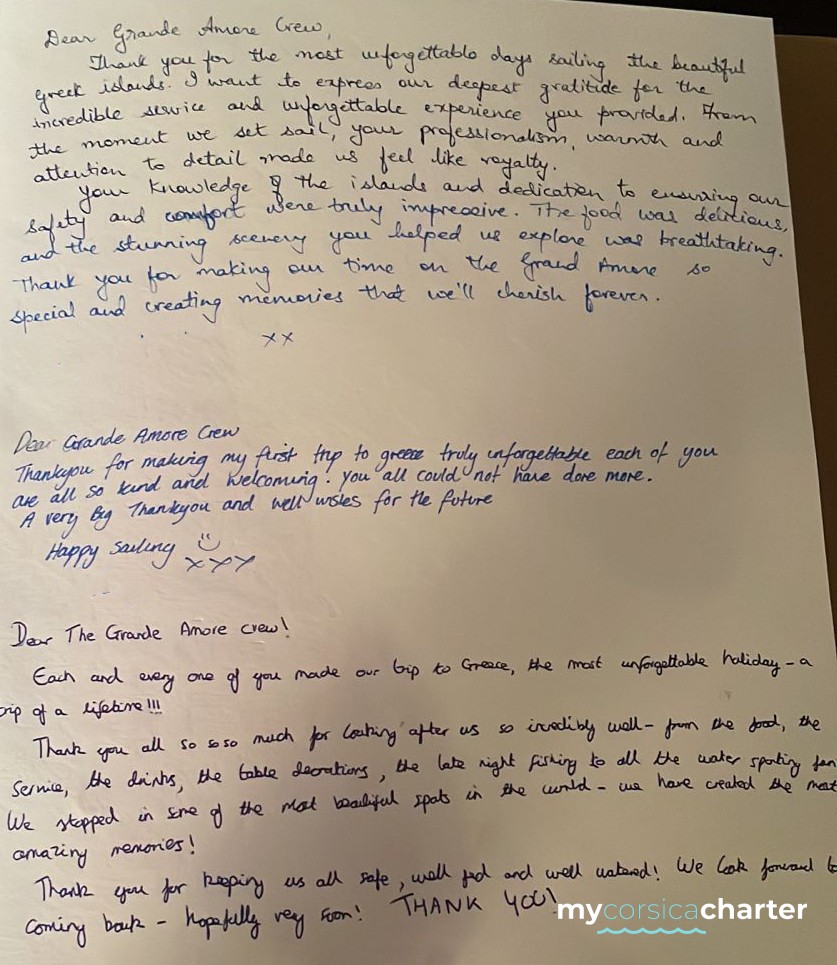 Dear Grande Amore Crew,
Thank you for the most unforgettable days sailing the beautiful
greek islands. I want to express our deepest gratitide for the
incredible service and unforgettable experience you provided. From
the moment we set sail, your professionalism, warmth and
attention to detail made us feel like royalty.
Your knowledge of the islands and dedication to ensuring our
safety and comfort were truly impressive. The food was delicious,
and the stunning scenery you helped us explore was breathtaking.
Thank you for making our time on the Grand Amore so
special and creating memories that we'll cherish forever.
xx
Dear Grande Amore Crew
Thankyou for making my first trip to greece truly unforgettable each of you
are all so kind and welcoming. you all could not have done more.
A very Big Thankyou and well wishes for the future
Happy Sailing
xxx
Dear The Grande Amore crew!
Each and every one of you made our trip to Greece, the most unforgettable holiday - a
trip of a lifetime!!!
Thank you all so so so much for looking after us so incredibly well - from the food, the
service, the drinks, the table decorations, the late night fishing to all the water sporting fun
We stopped in some of the most beautiful spots in the world - we have created the most
amazing memories!
Thank you for keeping us all safe, well fed and well watered! We look forward to
coming back - hopefully very soon! THANK YOU!
mycorsicacharter